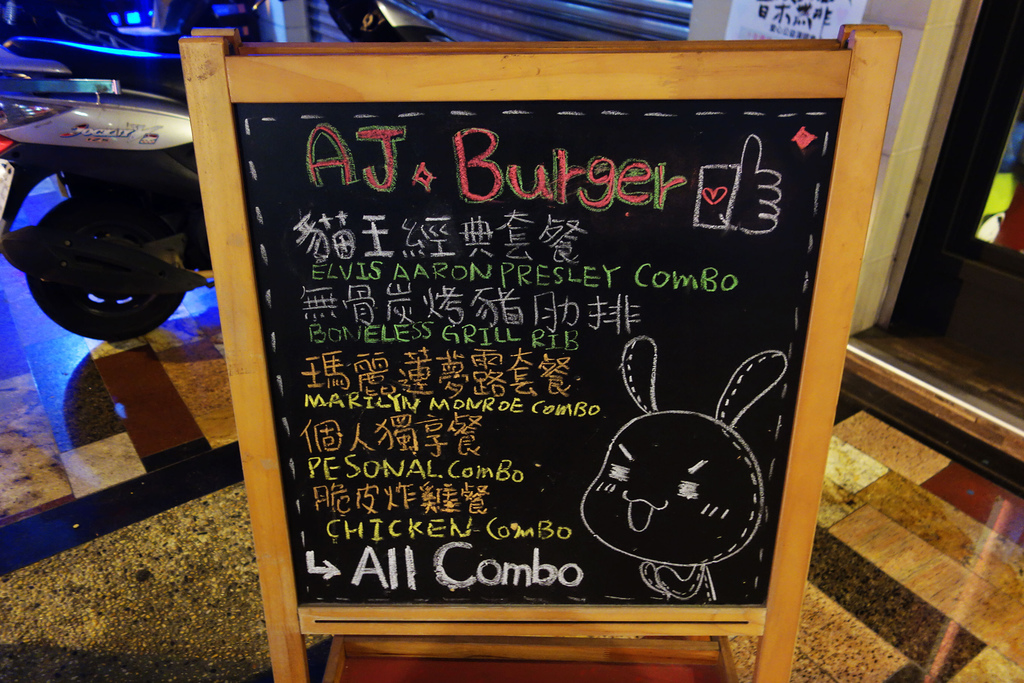 AJ Burger
貓王經典套餐
ELVIS AARON PRESLEY ComBo
無骨炭烤豬肋排
BONELESS GRILL RIB
瑪麗蓮夢露套餐
MARILYN MONROE COMBO
個人獨享餐
PESONAL ComBo
脆皮炸雞餐
CHICKEN ComBo
All Combo